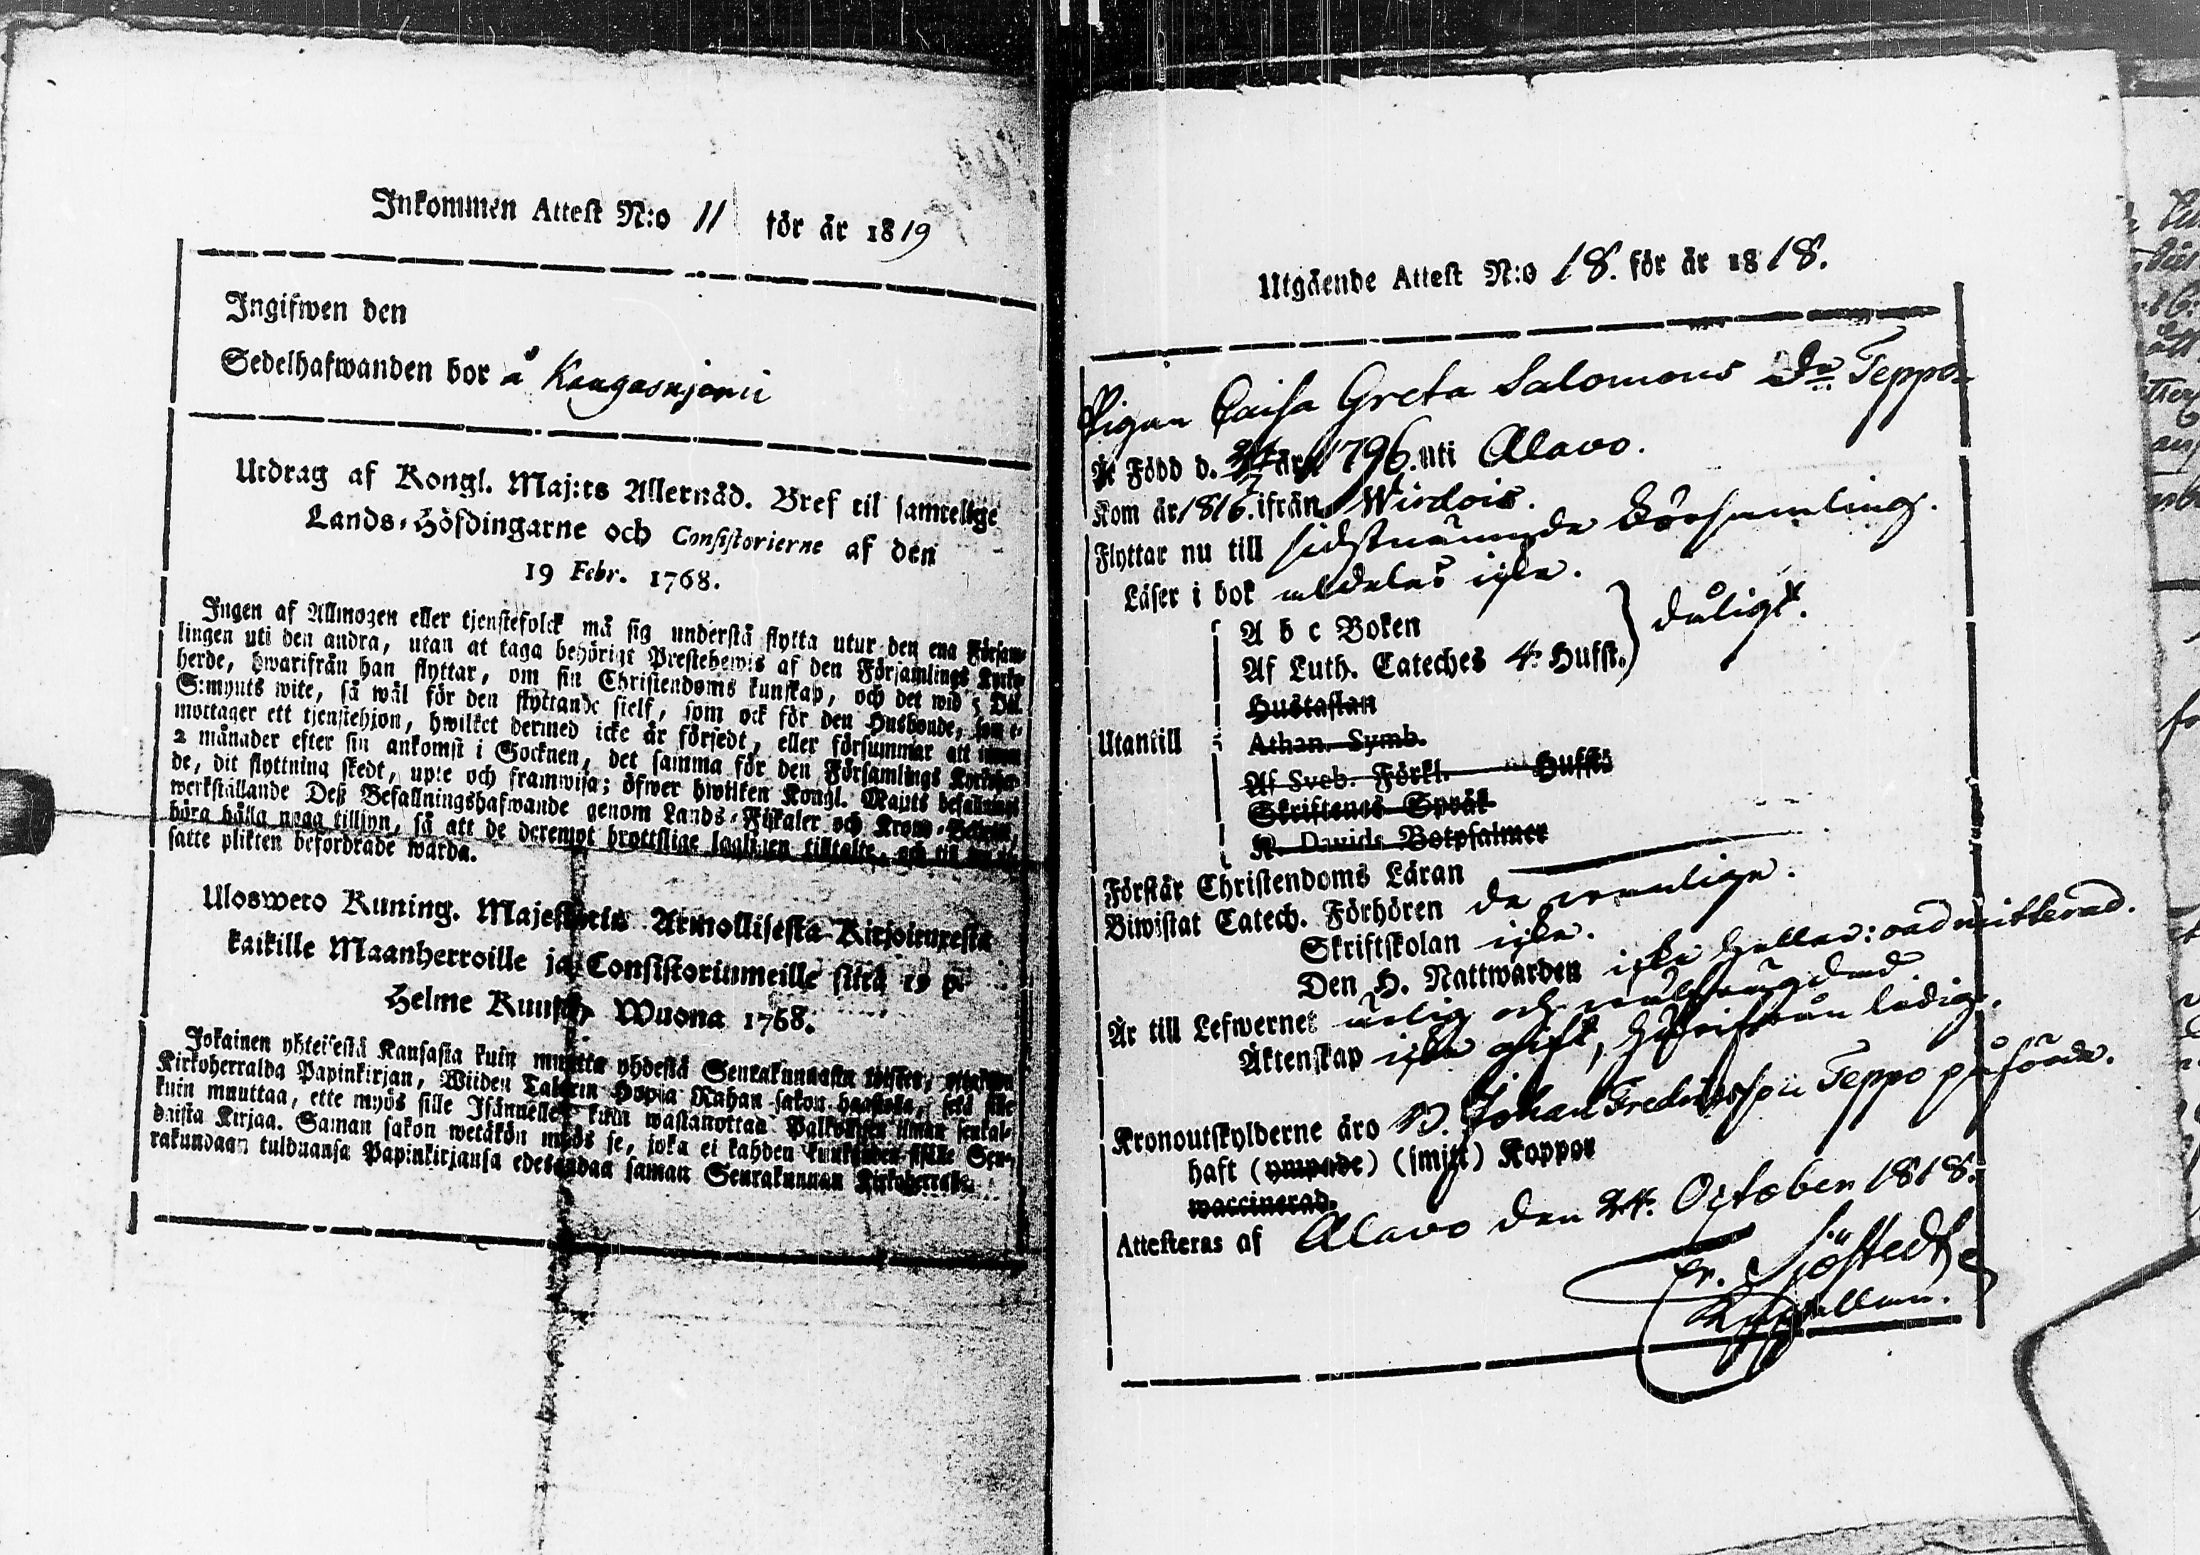 Inkommen Attest N:o 11 för år 1819
Ingifwen den
Sedelhafwanden bor å Kangasnjemi
Utdrag af Kongl. Maj:ts Allernåd. Bref til samtelige
Lands-Höfdingarne och Consistorierne af den
19 Febr. 1768.
Ingen af Allmogen eller tjenstefolck må sig understå flytta utur den ena Försam-
lingen uti den andra, utan at taga behörigt Prestebewis af den Församlings Kyrko-
herde, hwarifrån han flyttar, om sin Christendoms kunskap, och det wid 5 Dal.
S:mynts wite, så wäl för den flyttande sielf, som ock för den Husbonde, som e-
mottager ett tjenstehjon, hwilket dermed icke är försedt, eller försummar att innom
2 månader efter sin ankomst i Socknen, det samma för den Församlings Kyrkoher-
de, dit flyttning skedt, upte och framwisa; öfwer hwilken Kongl. Maj:ts befallning
werkställande Deß Befallningshafwande genom Lands-Fiskaler och Krono-Betjente,
böra hålla noga tillsyn, så att de deremot brottslige lagligen tilltalte, och til
satte plikten befordrade warda.
Ulosweto Kuning. Majestetin Armollisesta Kirjoituxesta
kaikille Maanherroille ja Consistoriumeille siitä 19 p.
Helme Kuusta Wuona 1768.
Jokainen yhteisestä Kansasta kuin muutta yhdestä Seurakunnasta toiseen, ottakoon
Kirkoherralda Papinkirjan, Wiiden Talarin Hopia Rahan sakon haastolla, sekä sille
kuin muuttaa, ette myös sille Isännelle kuin wastanottaa Palkollisen ilman senkal-
daista Kirjaa. Saman sakon wetäkön myös se, joka ei kahden kuukauden sisälle Seu-
rakundaan tulduansa Papinkirjansa edesandaa saman Seurakunnan Kirkoherralle.
Utgående Attest N:o 18. för år 1818.
Pigan Caisa Greta Salomons Dr Teppo
Är Född d. 24 år 1796. uti Alavo.
Kom år 1816. ifrån Wirdois.
Flyttar nu till sidstnämnde Församling.
Läser i bok aldeles icke.
A b c Boken
Af Luth. Cateches 4. Hufst. } dåligt.
Hustaflan
Utantill Athan. Symb.
Af Sveb. Förkl. Hufst.
Skriftenes Språk
K. Davids Botpsalmer
Förstår Christendoms Läran
Biwistat Catech. Förhören de wanlige.
Skriftskolan icke.
Den H. Nattwarden icke heller: oadmitterad.
Är till Lefwernet ärlig och
Äktenskap icke gift, ledig.
Kronoutskylderne äro Johan Fredricsson Teppo påförde.
haft (ympade) (smitt) Koppor
waccinerad.
Attesteras af Alavo den 24. October 1818.
Er. Sjöstedt
Kapellan.